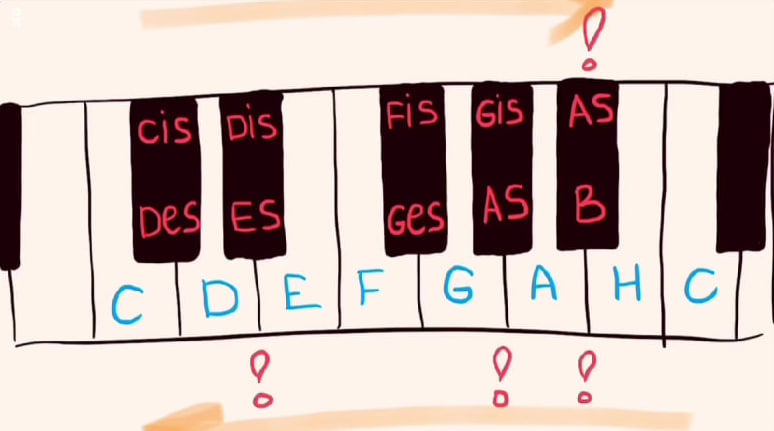 !
Cis Dis Fis Gis AS
Des ES Ges AS B
C D E F G A H C
! ! !